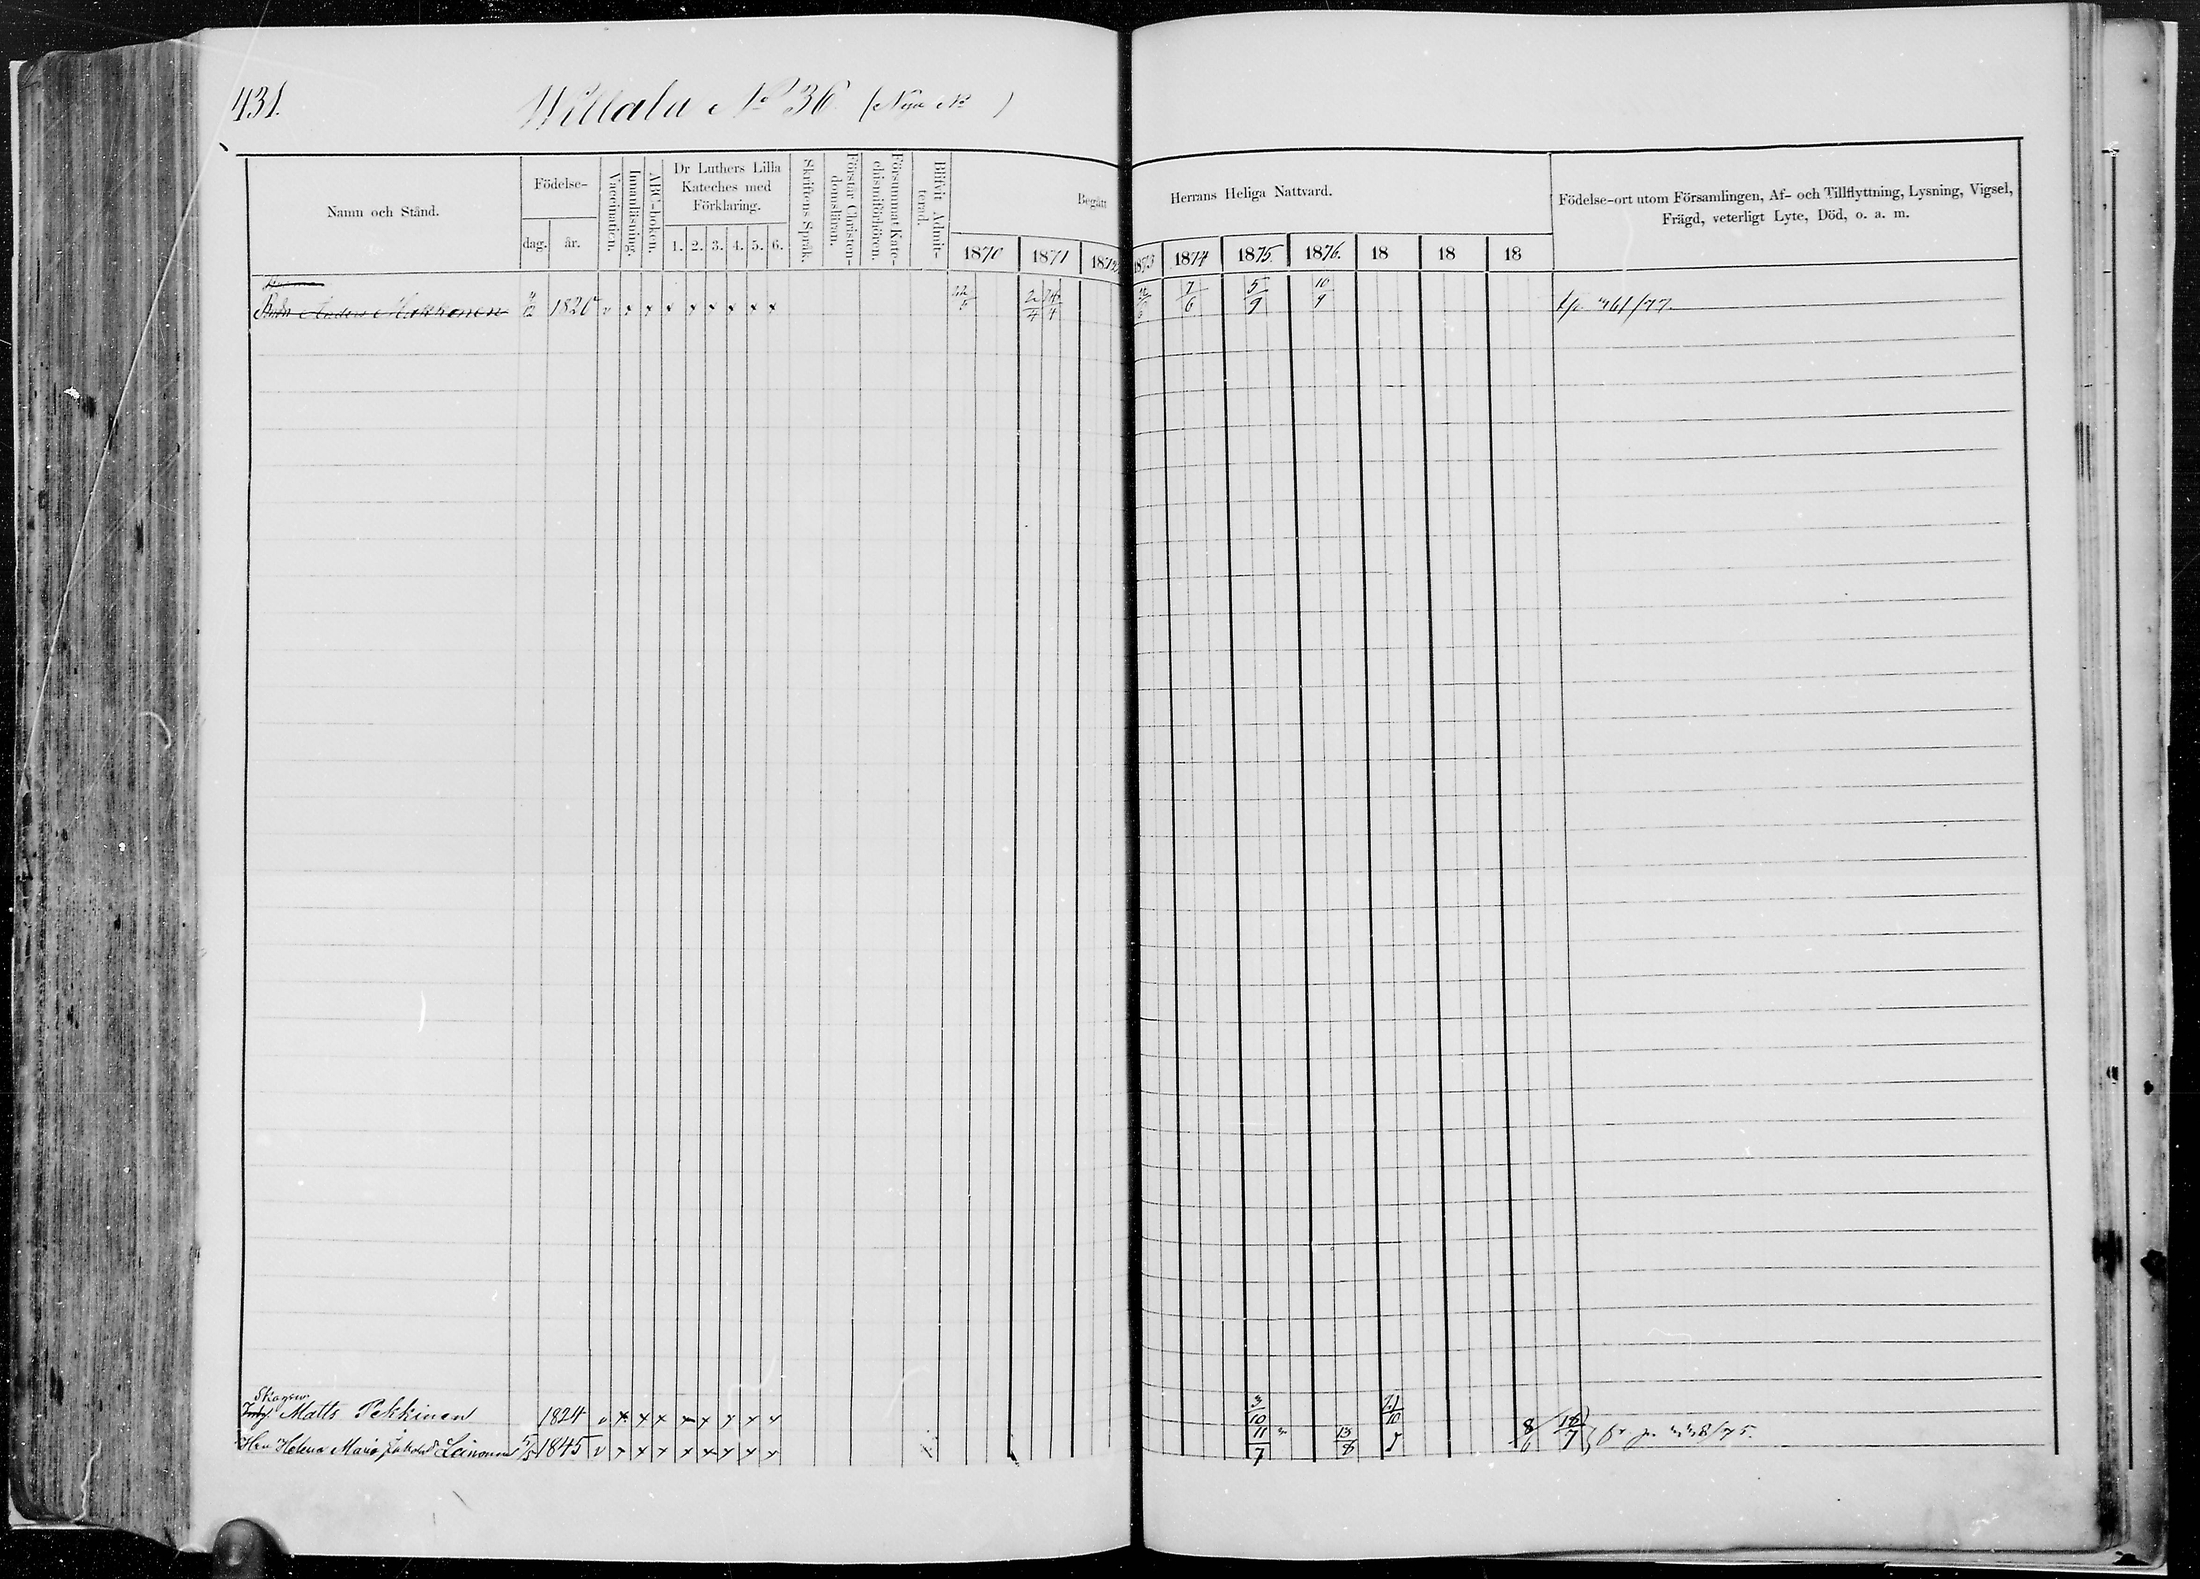 431.
Willala No 36. (Nya No )
Namn och Stånd.
Födelse-
dag.
år.
Vaccination.
Innanläsning.
ABC-boken.
Dr Luthers Lilla
Kateches med
Förklaring.
1. 2. 3. 4. 5. 6.
Skriftens Språk.
Förstår Christen-
domsläran.
Försummat Kate-
chismiförhören.
Blifvit Admit-
terad.
Begått Herrans Heliga Nattvard.
1870 1871 1872 1873 1874 1875. 1876. 18 18 18
Födelse-ort utom Församlingen, Af- och Tillflyttning, Lysning, Vigsel,
Frägd, veterligt Lyte, Död, o. a. m.
Anders Makkonen 1820 v x x x x x x x x x 22/5 2/4 24/4 7/6 5/9 10/9 461/77.
Matts Pekkinen 1824 v x x x x x x x x 3/10 21/10
Helena Maria Leinonen 5/5 1845 v x x x x x x x x x 11/7 13/8 8/6 15/7 8/75.